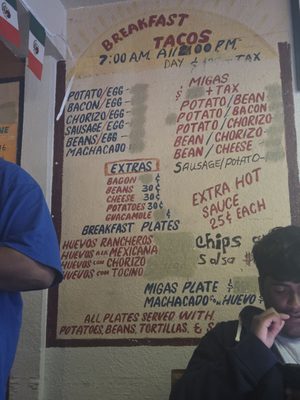 BREAKFAST
TACOS
7:00 AM 2:00 PM
DAY + TAX
POTATO/EGG
BACON/EGG
CHORIZO/EGG
SAUSAGE/EGG
BEANS/EGG
MACHACADO
MIGAS
$ + TAX
POTATO/BEAN
POTATO/BACON
POTATO/CHORIZO
BEAN/CHORIZO
BEAN/CHEESE
SAUSAGE/POTATO
EXTRAS
BACON ¢
BEANS 30¢
CHEESE 30¢
POTATOES 30¢
GUACAMOLE ¢
EXTRA HOT
SAUCE
25¢ EACH
BREAKFAST PLATES
HUEVOS RANCHEROS
HUEVOS A LA MEXICANA
HUEVOS CON CHORIZO
HUEVOS CON TOCINO
Chips
Salsa
MIGAS PLATE $
MACHACADO CON HUEVO $
ALL PLATES SERVED WITH
POTATOES, BEANS, TORTILLAS, &